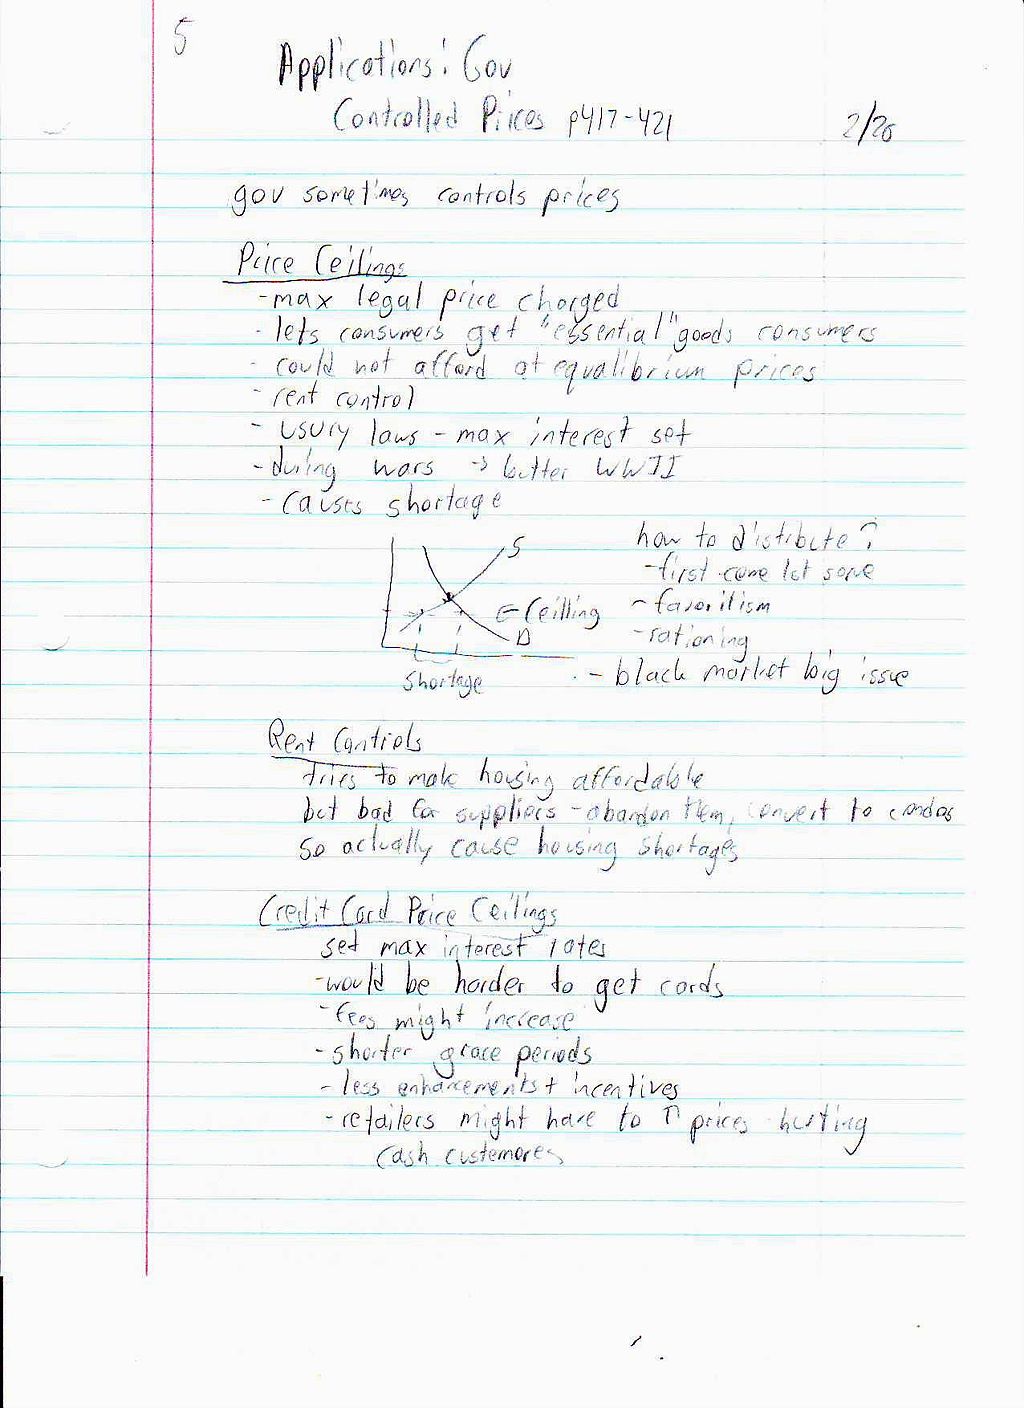 5
Applications: Gov
Controlled Prices p417-421
2/20
gov sometimes controls prices
Price Ceilings
-max legal price charged
- lets consumers get "essential" goods consumers
- could not afford at equalibrium prices
- rent control
- usury laws - max interest set
-during wars -> butter WWII
- causes shortage
S
<-Ceilling
D
shortage
how to distribute?
-first come 1st serve
- favoritism
-rationing
- black market big issue
Rent Controls
tries to make housing affordable
but bad for suppliers - abandon them, convert to condos
so actually cause housing shortages
Credit Card Price Ceilings
set max interest rates
-would be harder to get cards
-fees might increase
-shorter grace periods
- less enhancements + incentives
-retailers might have to ↑ prices hurting
cash custemores